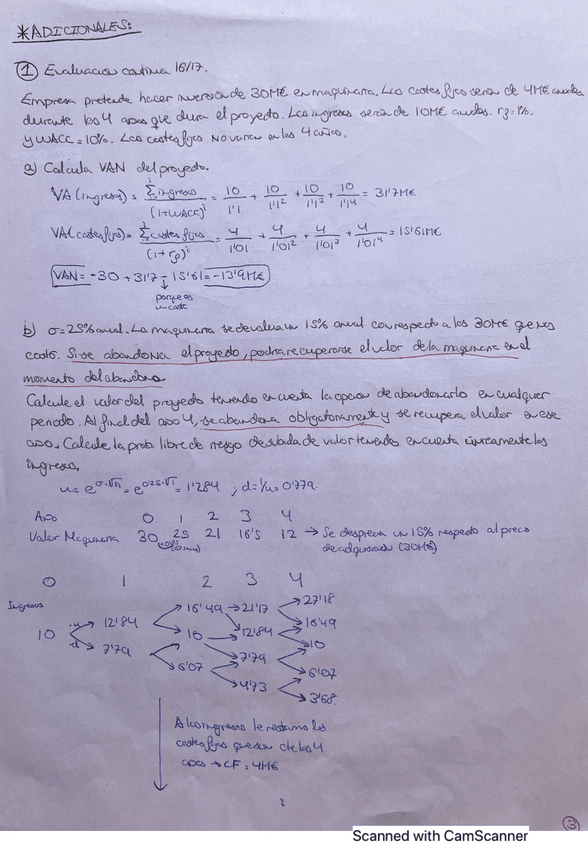 *ADICIONALES:
① Evaluacion continua 16/17.
Empresa pretende hacer inversion de 30M€ en maquinaria. Los costes fijos seran de 4M€ anuales
durante los 4 años que dura el proyecto. Los ingresos seran de 10M€ anuales. rf=1%.
y WACC = 10%. Los costes fijos NO varian en los 4 años.
a) Calcula VAN del proyecto.
VA (ingresos) = Σ ingresos / (1+WACC)^i = 10/1'1 + 10/1'1² + 10/1'1³ + 10/1'1⁴ = 31'7M€
VA(costes fijos) = Σ costes fijos / (1+rf)^i = 4/1'01 + 4/1'01² + 4/1'01³ + 4/1'01⁴ = 15'61M€
VAN = -30 + 31'7 - 15'61 = -13'9M€
porque es
un coste
b) σ=25% anual. La maquinaria se devalua un 15% anual con respecto a los 30M€ que nos
costó. Si se abandona el proyecto, podria recuperarse el valor de la maquinaria en el
momento del abandono.
Calcule el valor del proyecto teniendo en cuenta la opcion de abandonarlo en cualquier
periodo. Al final del año 4, se abandona obligatoriamente y se recupera el valor en ese
año. Calcule la prob libre de riesgo de subida de valor teniendo en cuenta únicamente los
ingresos.
u = e^σ·√h = e^0'25·√1 = 1'284 ; d=1/u = 0'779.
Año 0 1 2 3 4
Valor Maquinaria 30 25 21 16'5 12 → Se deprecia un 15% respecto al precio
de adquisicion (30M€)
0 1 2 3 4
Ingresos
27'18
16'49 21'17
12'84 16'49
10 u 10 12'84 10
d 7'79 7'79
6'07 6'07
4'73
3'68
A los ingresos le restamos los
costes fijos que son de los 4
años → CF = 4M€
3
Scanned with CamScanner